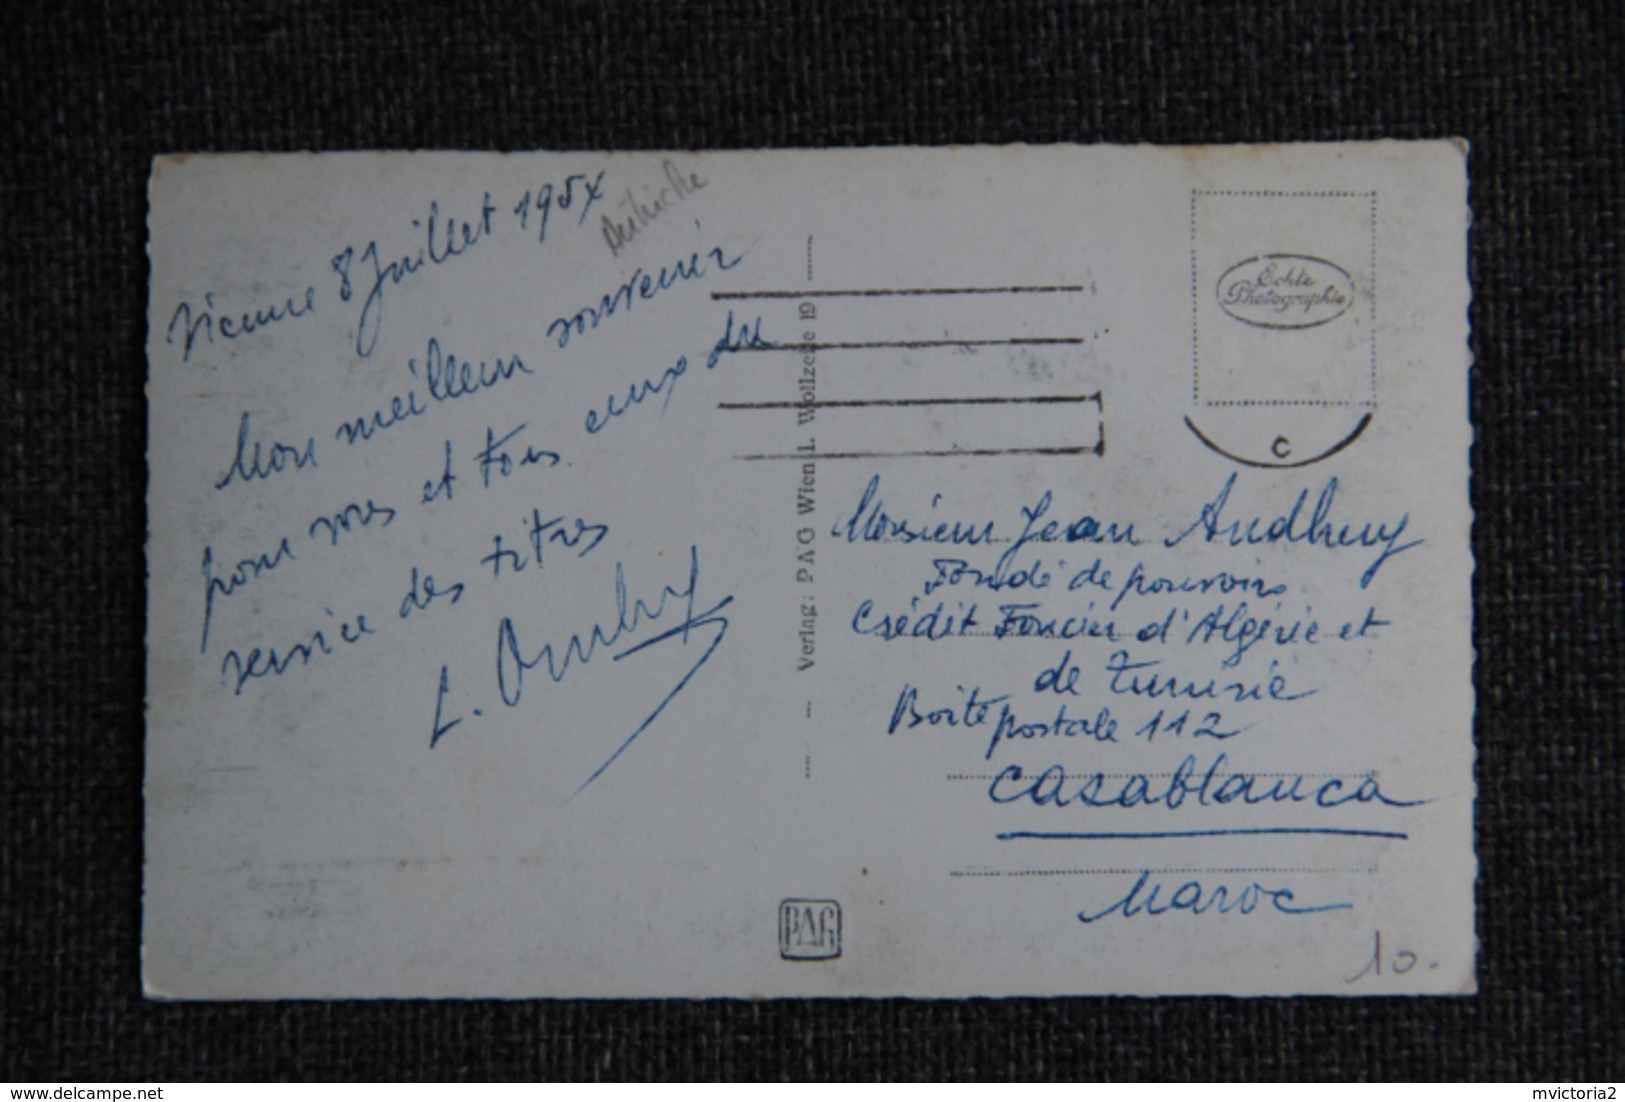 Vienne 8 Juillet 195
Autriche
Mon meilleur souvenir
pour vous et tous ceux du
service des titres
L.
Verlag: PAG Wien 1. Wollzeile 19
Echte
Photographie
C
Monsieur Jean Audhuy
Fondé de pouvoirs
Crédit Foncier d'Algérie et
de Tunisie
Boite postale 112
Casablanca
Maroc
PAG
10.
delcampe.net
mvictoria2